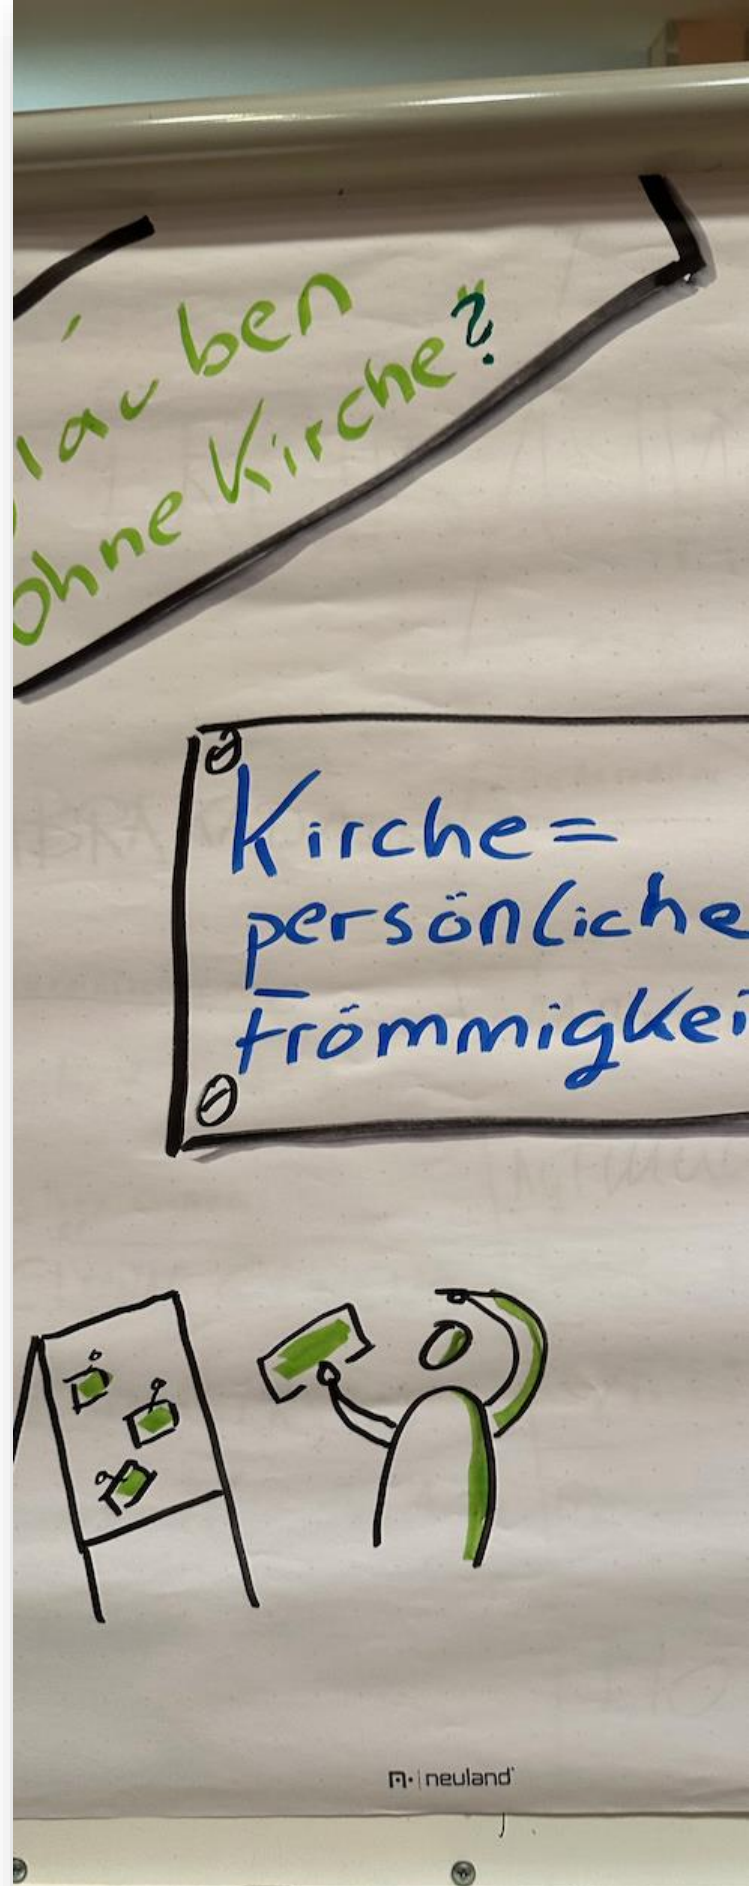 glauben
ohne Kirche?
Kirche=
persönliche
Frömmigkei
neuland